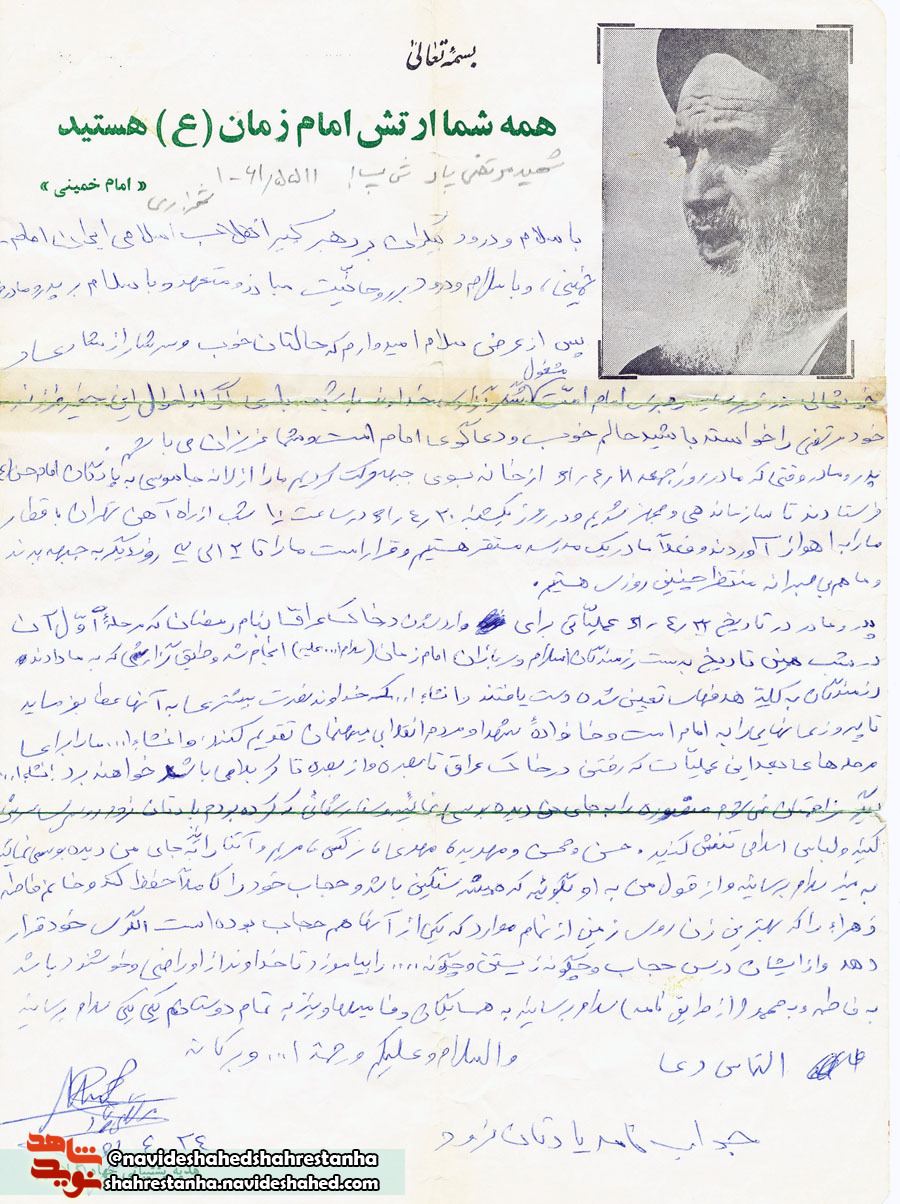 بسمه تعالی
همه شما ارتش امام زمان (ع) هستید
« امام خمینی »
شهید مرتضی
با سلام و درود بیکران بر رهبر کبیر انقلاب اسلامی ایران امام
خمینی، و با سلام و درود بر روحانیّت مبارز و متعهد و با سلام بر پدر و مادر
پس از عرض سلام امیدوارم که حالتان خوب و سرشار از
مشغول
خود مرتضی را خواسته باشید حالم خوب و دعاگوی امام امت و شما عزیزان می باشم.
پدر و مادر وقتی که ما در روز جمعه ۱۸ ر ۴ ر ۶۱ از خانه بسوی جبهه حرکت کردیم ما را از لانه جاسوسی به پادگان امام حسن (ع)
فرستادند تا سازماندهی و مجهز شدیم و در روز یکشنبه ۲۰ ر ۴ ر ۶۱ در ساعت ۱۰ شب از راه آهن تهران با قطار
ما را به اهواز آوردند و فعلاً ما در یک مدرسه مستقر هستیم و قرار است ما را تا ۲ الی ۳ روز دیگر به جبهه ببرند
و ما هم بی صبرانه منتظر چنین روزی هستیم.
پدر و مادر در تاریخ ۲۲ ر ۴ ر ۶۱ عملیّاتی برای وارد شدن در خاک عراق بنام رمضان که مرحلهٔ اوّل آن
در شب همین تاریخ بدست رزمندگان اسلام و سربازان امام زمان (سلام ا... علیه) انجام شد و طبق گزارشی که به ما دادند
رزمندگان به کلیهٔ هدفهای تعیین شده دست یافتند و انشاء ا... که خداوند نصرت بیشتری به آنها عطا بفرماید
تا پیروزی نهایی را به امام امت و خانوادهٔ شهدا و مردم انقلابی میهنمان تقدیم کنند. و انشاء ا... ما را برای
مرحله های بعد این عملیّات که رفتن در خاک عراق تا بصره و از بصره تا کربلا می باشد خواهند برد انشاء ا...
کنید و لباس اسلامی تنش کنید. حسن و محسن و مهدیه و مهدی و نرگس و مریم و آتنا را نیز به جای من دیده بوسی نمائید
به سلام برسانید و از قول من به او بگوئید که همیشه سنگین باشد و حجاب خود را کاملاً حفظ کند و خانم فاطمه
زهراء را که بهترین زن روی زمین از تمام موارد که یکی از آنها هم حجاب بوده است الگوی خود قرار
دهد و از ایشان درس حجاب و چگونه زیستن و چگونه .... را بیاموزد تا خداوند از او راضی و خوشنود باشد
به فاطمه و به (از طریق نامه) سلام برسانید به همسایگان و فامیلها و نیز به تمام دوستانم یکی یکی سلام برسانید
والسلام و علیکم و رحمة ا... و برکاته
التماس دعا
جواب نامه یادتان نرود
۶۱ ر ۴ ر ۲۴
شاهد
نوید
@navideshahedshahrestanha
shahrestanha.navideshahed.com